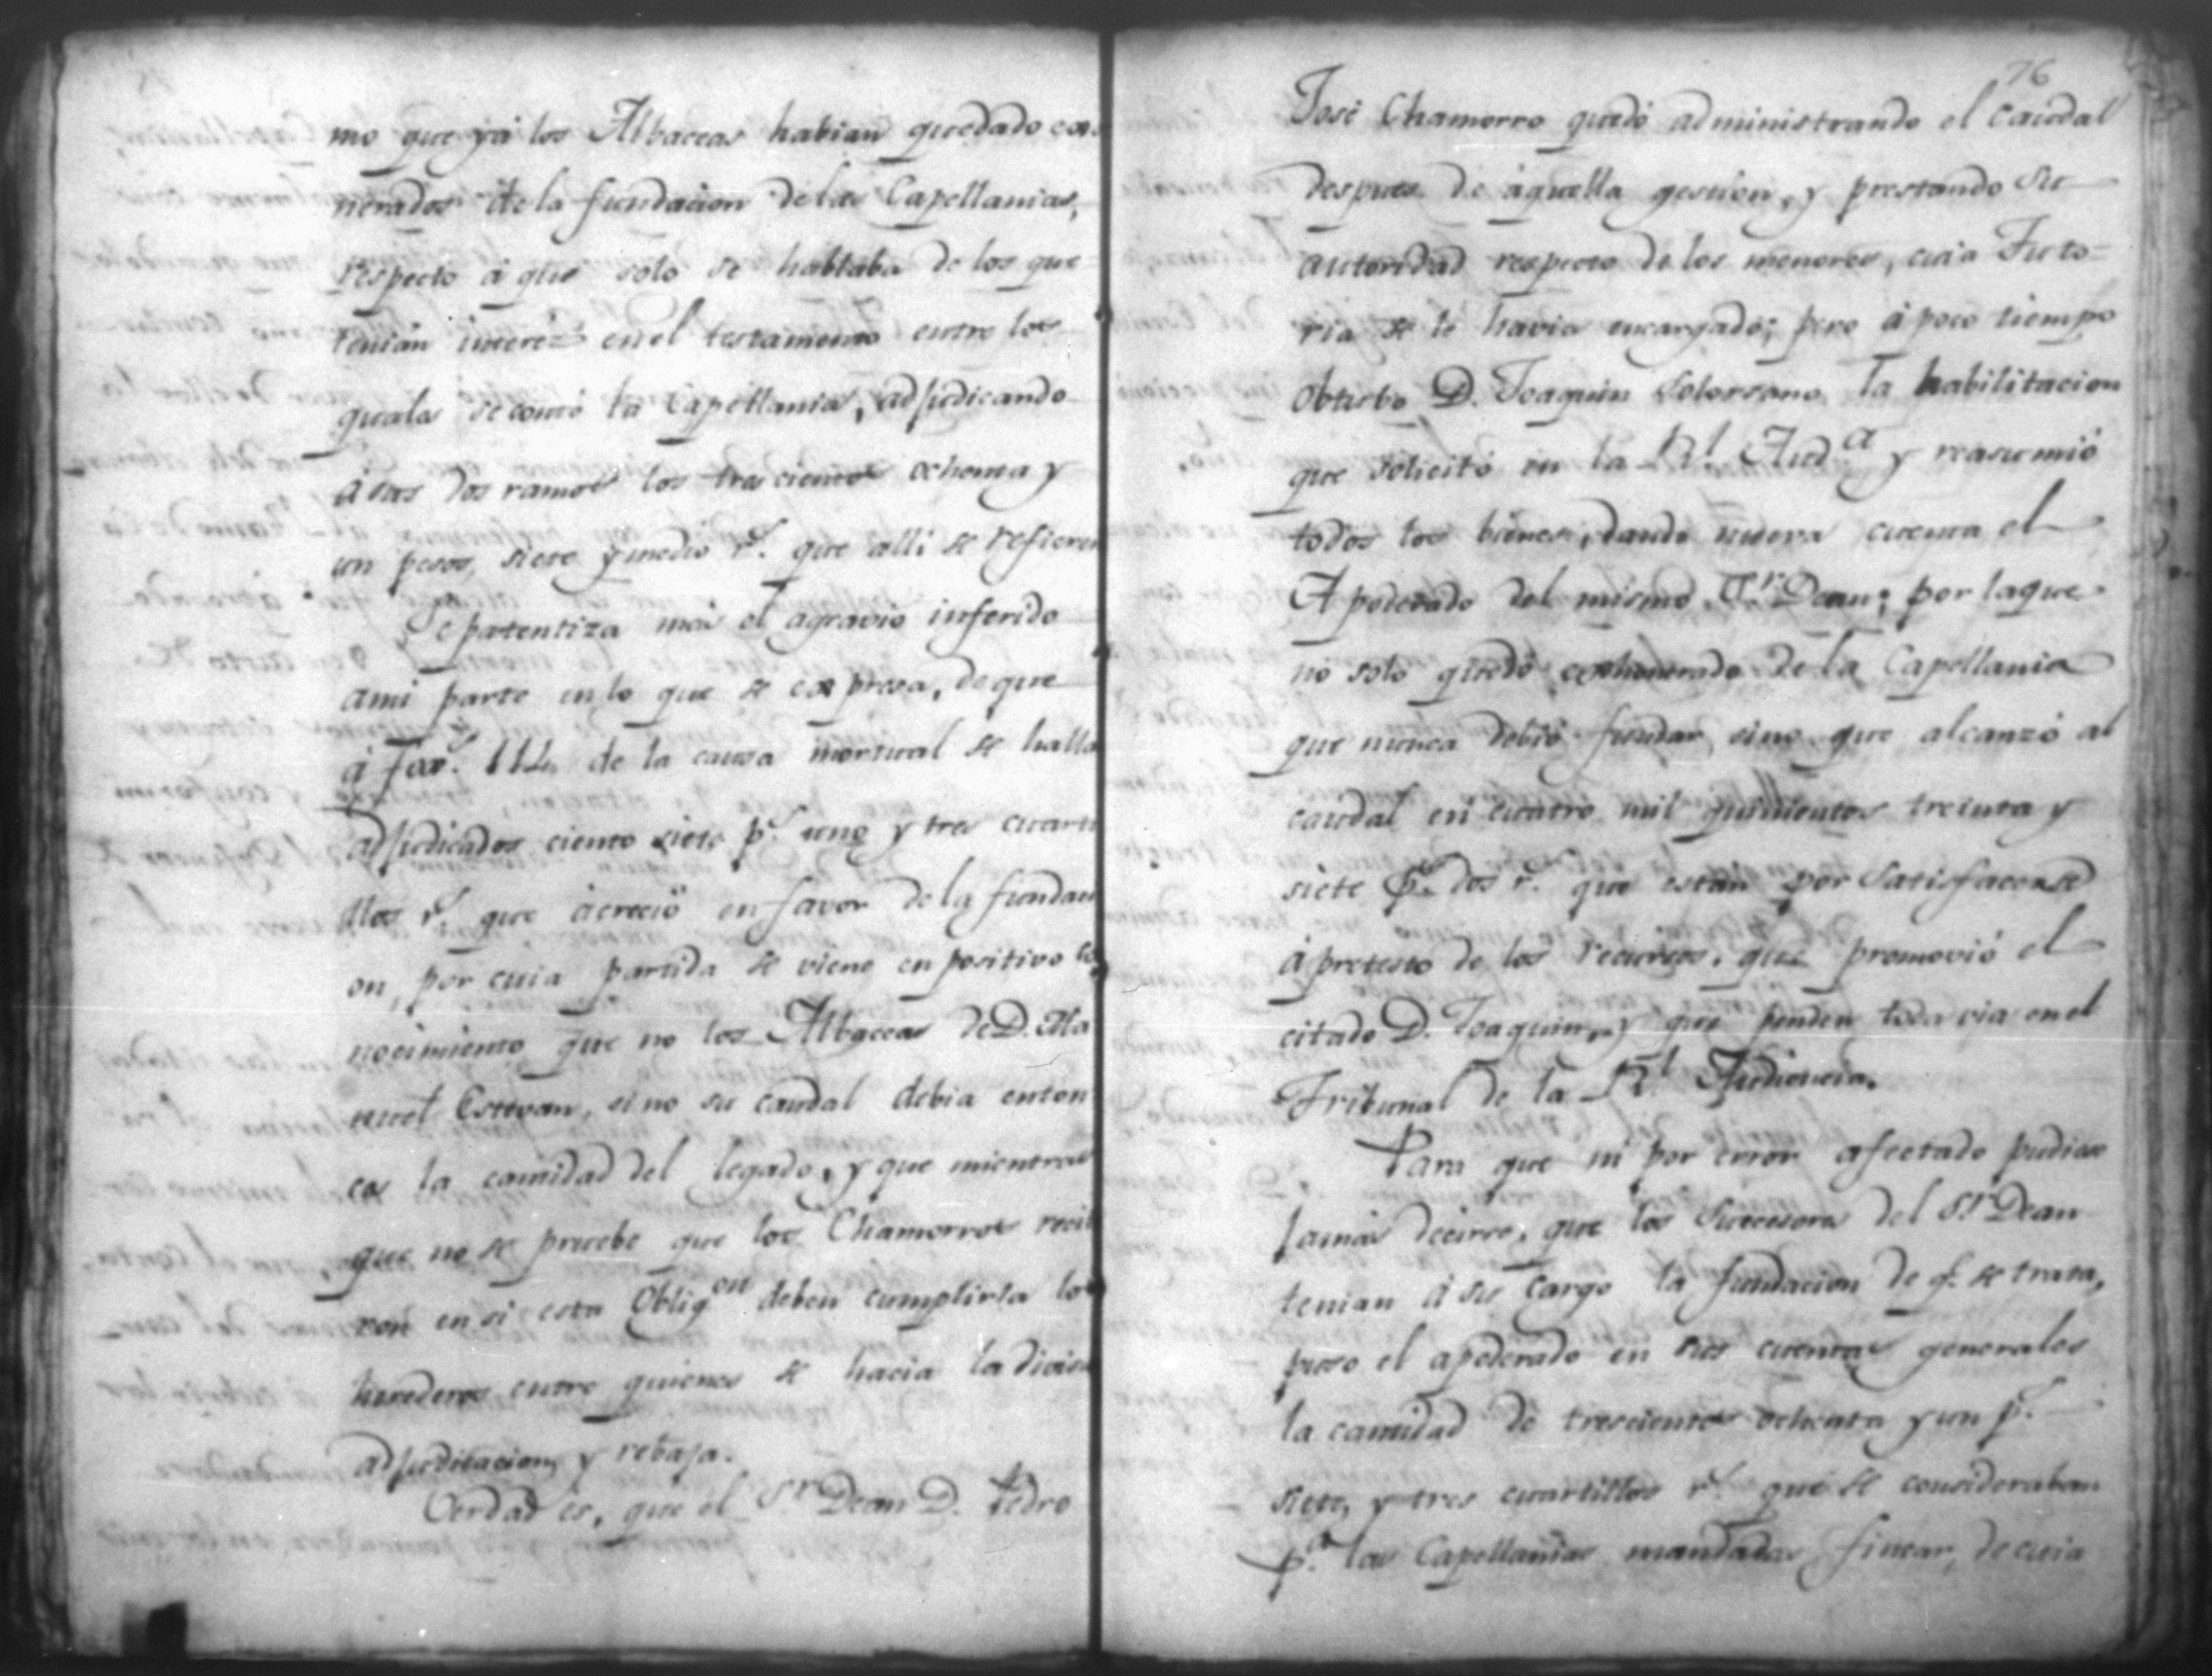 mo que yá los Albaceas habian quedado exo
nerados de la fundacion de las Capellanias,
respecto á que solo se hablaba de los que
tenian interéz en el testamento entre los
quales se contó la Capellania, adjudicando
á sus dos ramos los trescientos ochenta y
un pesos, siete y medio r.s que alli se refieren
Se patentiza mas el agravio inferido
ami parte en lo que se expresa, de que
á fox.s 112 de la causa mortual se halla
adjudicados ciento siete p.s uno y tres cuarti
llos r.s que acreció en favor de la fundaci
on, por cuia partida se viene en positivo co
nocimiento que no los Albaceas de D. Ma
nuel Estevan, sino su caudal debia enton
ces la cantidad del legado, y que mientras
que no se pruebe que los Chamorros recib
ron en si esta Oblig.on deben cumplirla los
herederos entre quienes se hacia la divisi
adjudicacion, y rebaja.
Verdad es, que el S.r Dean D. Pedro
76
José Chamorro quedó administrando el caudal
despues de aquella gestion, y prestando su
autoridad respecto de los menores, cuia Tuto-
ria se le havia encargado; pero á poco tiempo
obtubo D. Joaquin Solorsano la habilitacion
que solicitó en la R.l Aud.a y reasumió
todos los bienes, dando nueva cuenta el
Apoderado del mismo S.r Dean; por la que
no solo quedó exhonerado de la Capellania
que nunca debió fundar sino que alcanzó al
caudal en cuatro mil quinientos treinta y
siete p.s dos r.s que están por satisfacerse
á pretesto de los recursos, que promovió el
citado D. Joaquin, y que penden toda via en el
Tribunal de la R.l Audiencia.
Para que ni por error afectado pudiese
jamás decirse, que los Succesores del S.r Dean
tenian á su cargo la fundacion de q.e se trata,
puso el apoderado en sus cuentas generales
la cantidad de trescientos ochenta y un p.s
siete, y tres cuartillos r.s que se consideraban
p.a las Capellanias mandadas fincar, de cuia